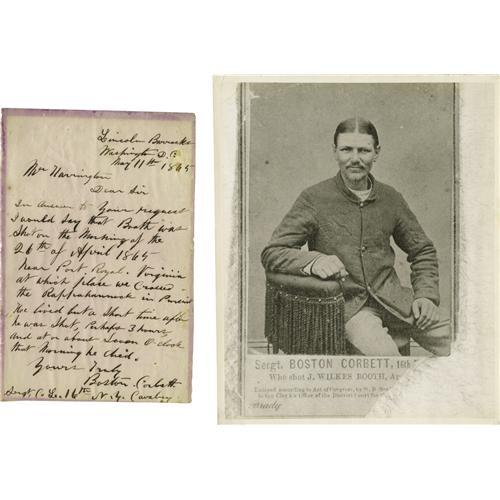 Lincoln Barracks
Washington D.C.
May 11th 1865
Mr Harrington
Dear Sir
In Answer to Your request
I would Say that Booth was
Shot on the Morning of the
26th of April 1865
Near Port Royal. Virginia
at which place we Crossed
the Rappahannock in Pursuit
He lived but a Short time after
he was Shot, Perhaps 3 hours
and at or about Seven O clock
that Morning he died.
Yours Truly
Boston Corbett
Sergt Co L. 16th N.Y. Cavalry
Sergt. BOSTON CORBETT, 16th
Who shot J. WILKES BOOTH, Ap
Entered according to Act of Congress, by M. B.
in the Clerk's Office of the District Court for
Brady